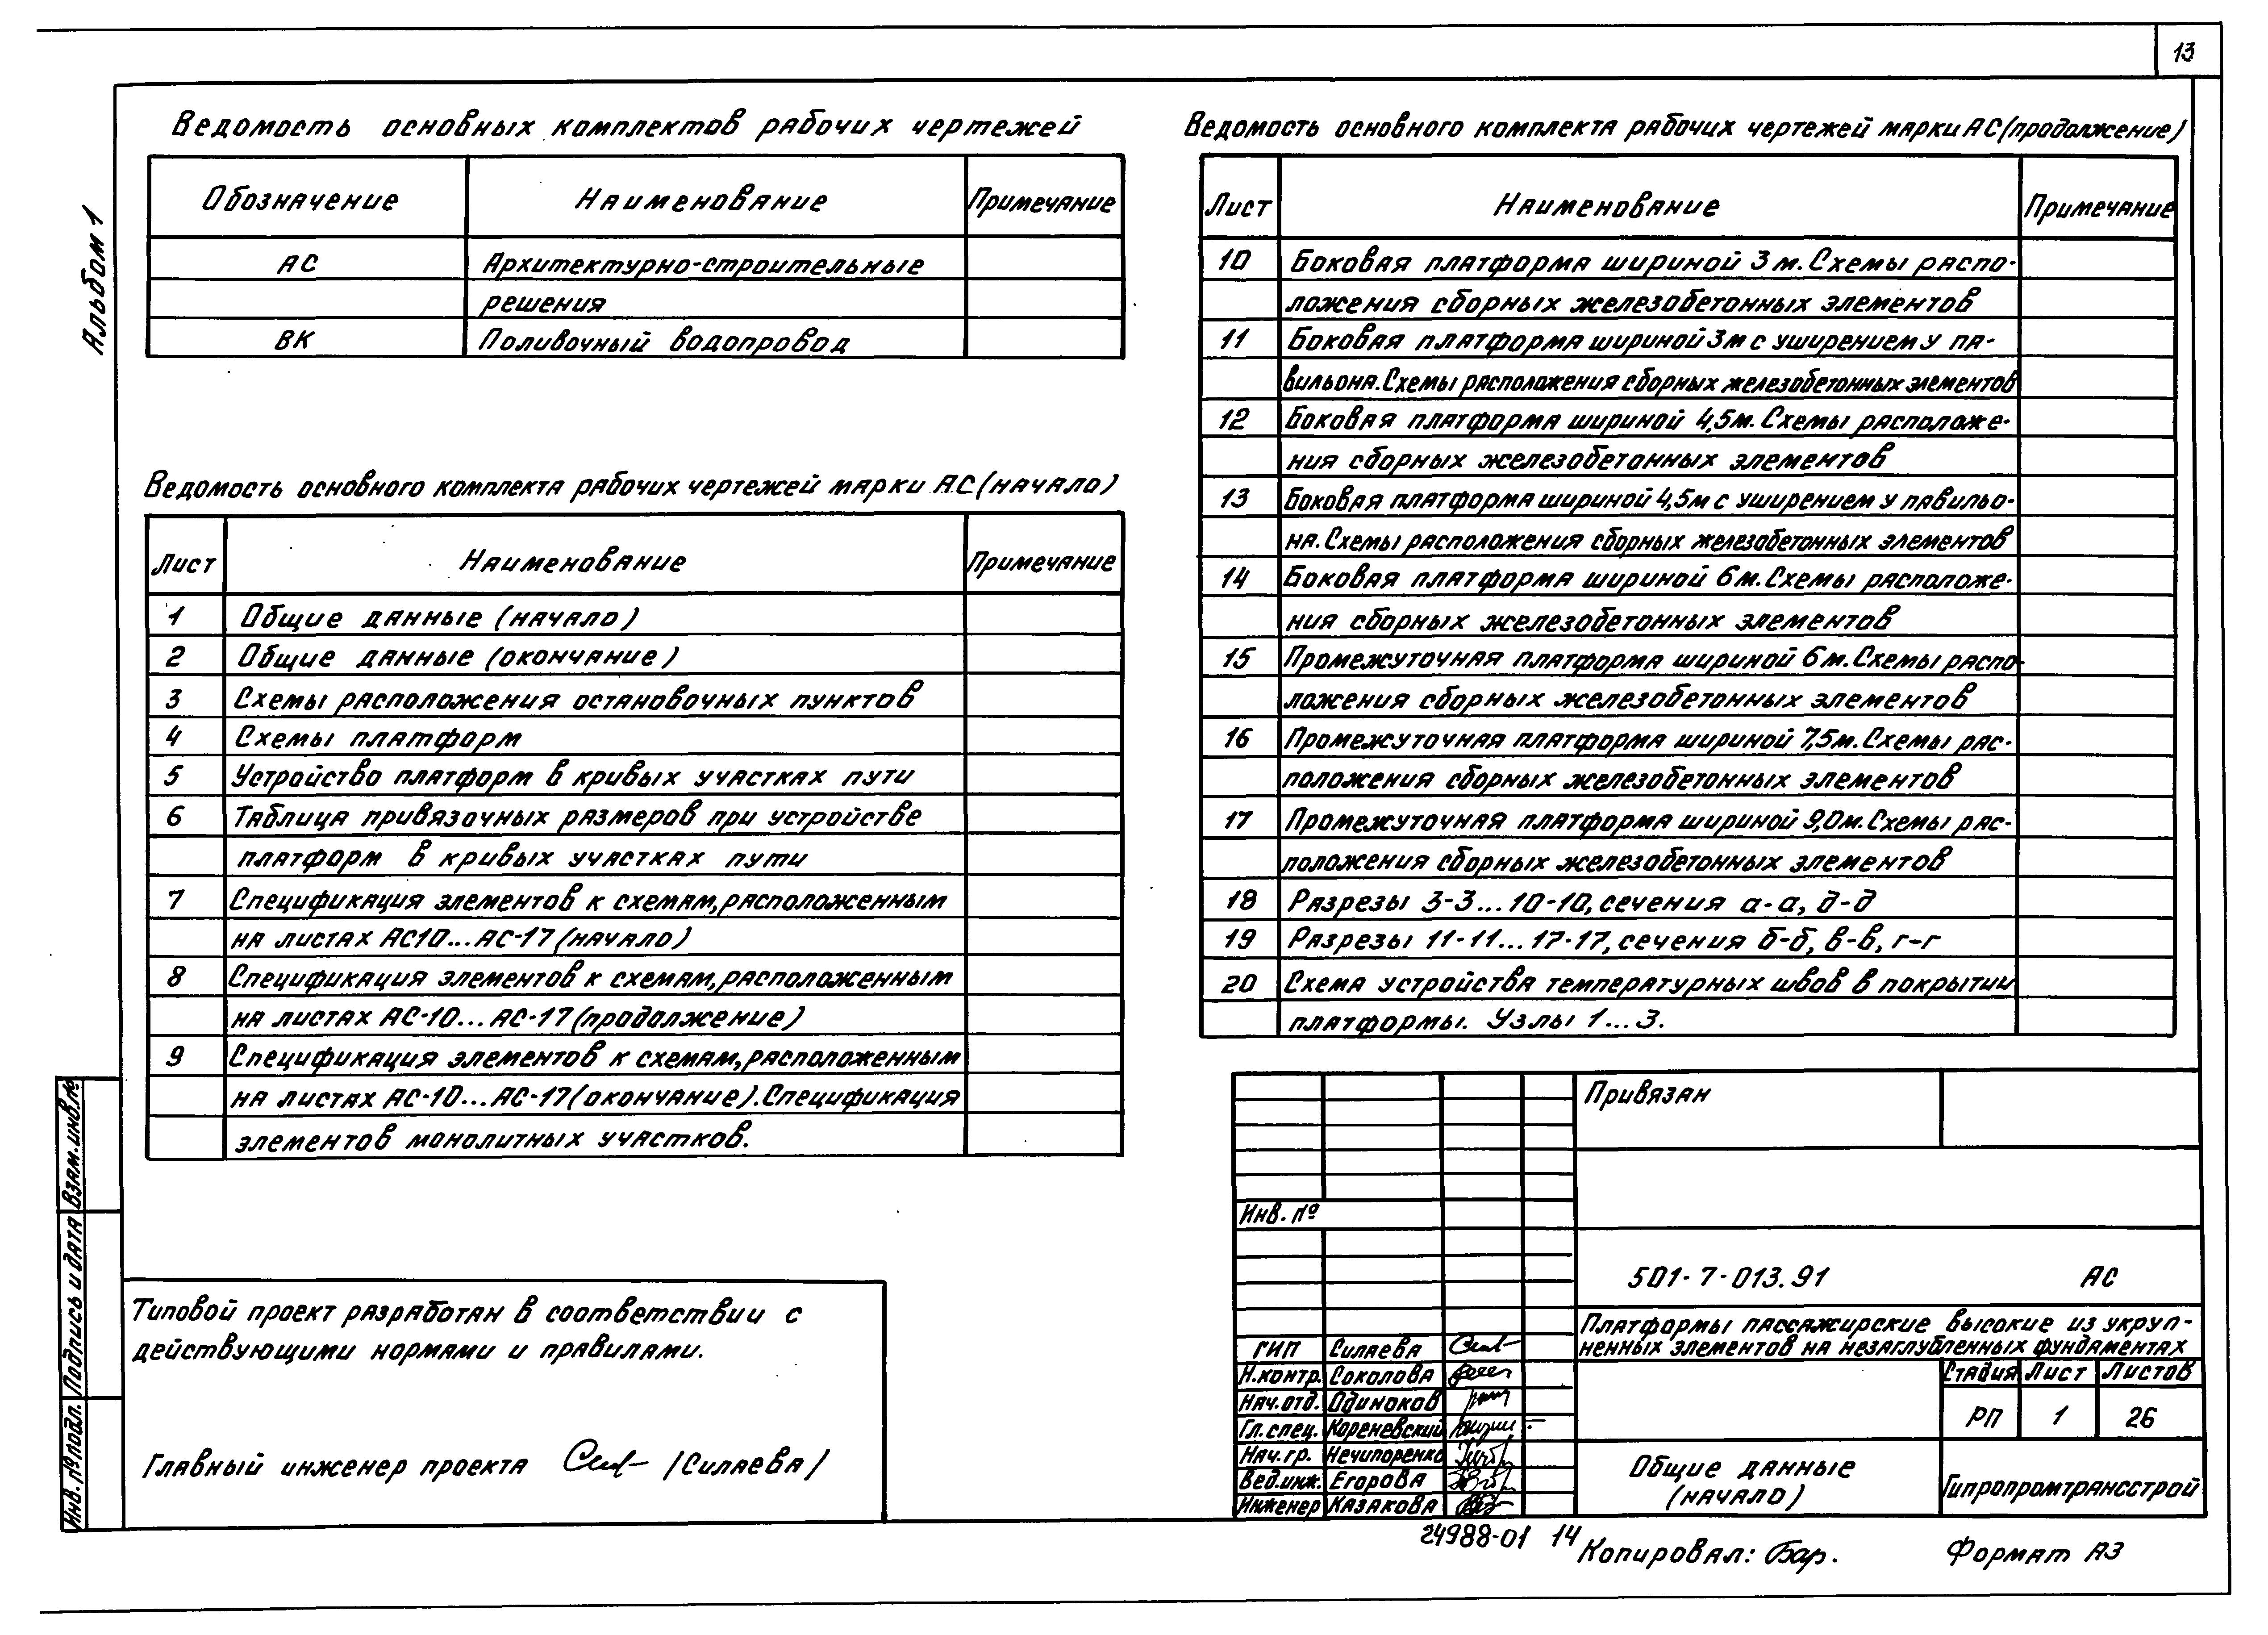 13
Альбом 1
Ведомость основных комплектов рабочих чертежей
Обозначение Наименование Примечание
АС Архитектурно-строительные
решения
ВК Поливочный водопровод
Ведомость основного комплекта рабочих чертежей марки АС (начало)
Лист Наименование Примечание
1 Общие данные (начало)
2 Общие данные (окончание)
3 Схемы расположения остановочных пунктов
4 Схемы платформ
5 Устройство платформ в кривых участках пути
6 Таблица привязочных размеров при устройстве
платформ в кривых участках пути
7 Спецификация элементов к схемам, расположенным
на листах АС10...АС-17 (начало)
8 Спецификация элементов к схемам, расположенным
на листах АС-10...АС-17 (продолжение)
9 Спецификация элементов к схемам, расположенным
на листах АС-10...АС-17 (окончание). Спецификация
элементов монолитных участков.
Ведомость основного комплекта рабочих чертежей марки АС (продолжение)
Лист Наименование Примечание
10 Боковая платформа шириной 3 м. Схемы распо-
ложения сборных железобетонных элементов
11 Боковая платформа шириной 3м с уширением у па-
вильона. Схемы расположения сборных железобетонных элементов
12 Боковая платформа шириной 4,5м. Схемы расположе-
ния сборных железобетонных элементов
13 Боковая платформа шириной 4,5м с уширением у павильо-
на. Схемы расположения сборных железобетонных элементов
14 Боковая платформа шириной 6м. Схемы расположе-
ния сборных железобетонных элементов
15 Промежуточная платформа шириной 6м. Схемы распо-
ложения сборных железобетонных элементов
16 Промежуточная платформа шириной 7,5м. Схемы рас-
положения сборных железобетонных элементов
17 Промежуточная платформа шириной 9,0м. Схемы рас-
положения сборных железобетонных элементов
18 Разрезы 3-3...10-10, сечения а-а, д-д
19 Разрезы 11-11...17-17, сечения б-б, в-в, г-г
20 Схема устройства температурных швов в покрытии
платформы. Узлы 1...3.
Взам. инв. №
Подпись и дата
Инв. № подл.
Типовой проект разработан в соответствии с
действующими нормами и правилами.
Главный инженер проекта (Силаева)
Привязан
Инв. №
501-7-013.91 АС
Платформы пассажирские высокие из укруп-
ненных элементов на незаглубленных фундаментах
ГИП Силаева
Н.контр. Соколова
Нач.отд. Одиноков
Гл.спец. Кореневский
Нач.гр. Нечипоренко
Вед.инж. Егорова
Инженер Казакова
Стадия Лист Листов
РП 1 26
Общие данные
(начало)
Гипропромтрансстрой
24988-01 14
Копировал: Бар.
Формат А3